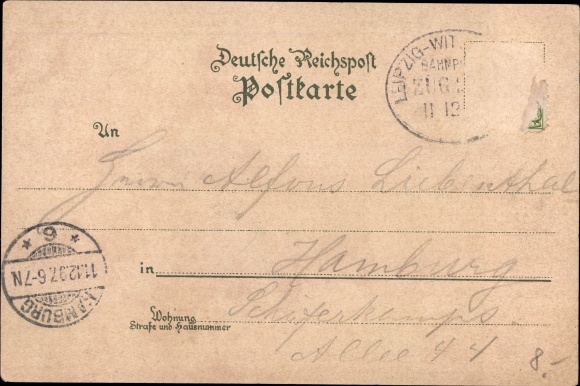 Deutsche Reichspost
Postkarte
LEIPZIG-WIT
BAHNP
ZUG
11 12
An
Herrn Alfons Liebenthal
* 6 *
11.12.97.6-7N
HAMBURG
in Hamburg
Wohnung
Straße und Hausnummer
Schäferkamps
Allee 44
8.-